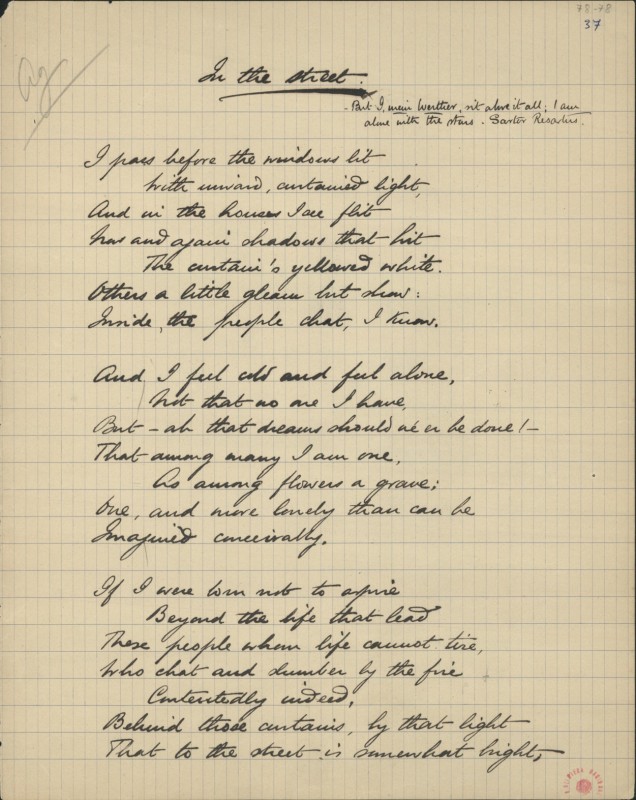 75-78
37
Ag
In the street.
- But I, mein Werther, sit above it all; I am
alone with the stars. Sartor Resartus.
I pass before the windows lit
With inward, curtained light,
And in the houses I see flit
Now and again shadows that hit
The curtain's yellowed white.
Others a little gleam but show:
Inside, the people chat, I know.
And I feel cold and feel alone,
Not that no one I have,
But - ah that dreams should ne'er be done! -
That among many I am one,
As among flowers a grave;
One, and more lonely than can be
Imagined conceivably.
If I were born not to aspire
Beyond the life that lead
These people whom life cannot tire,
Who chat and slumber by the fire
Contentedly indeed,
Behind those curtains, by that light
That to the street is somewhat bright,